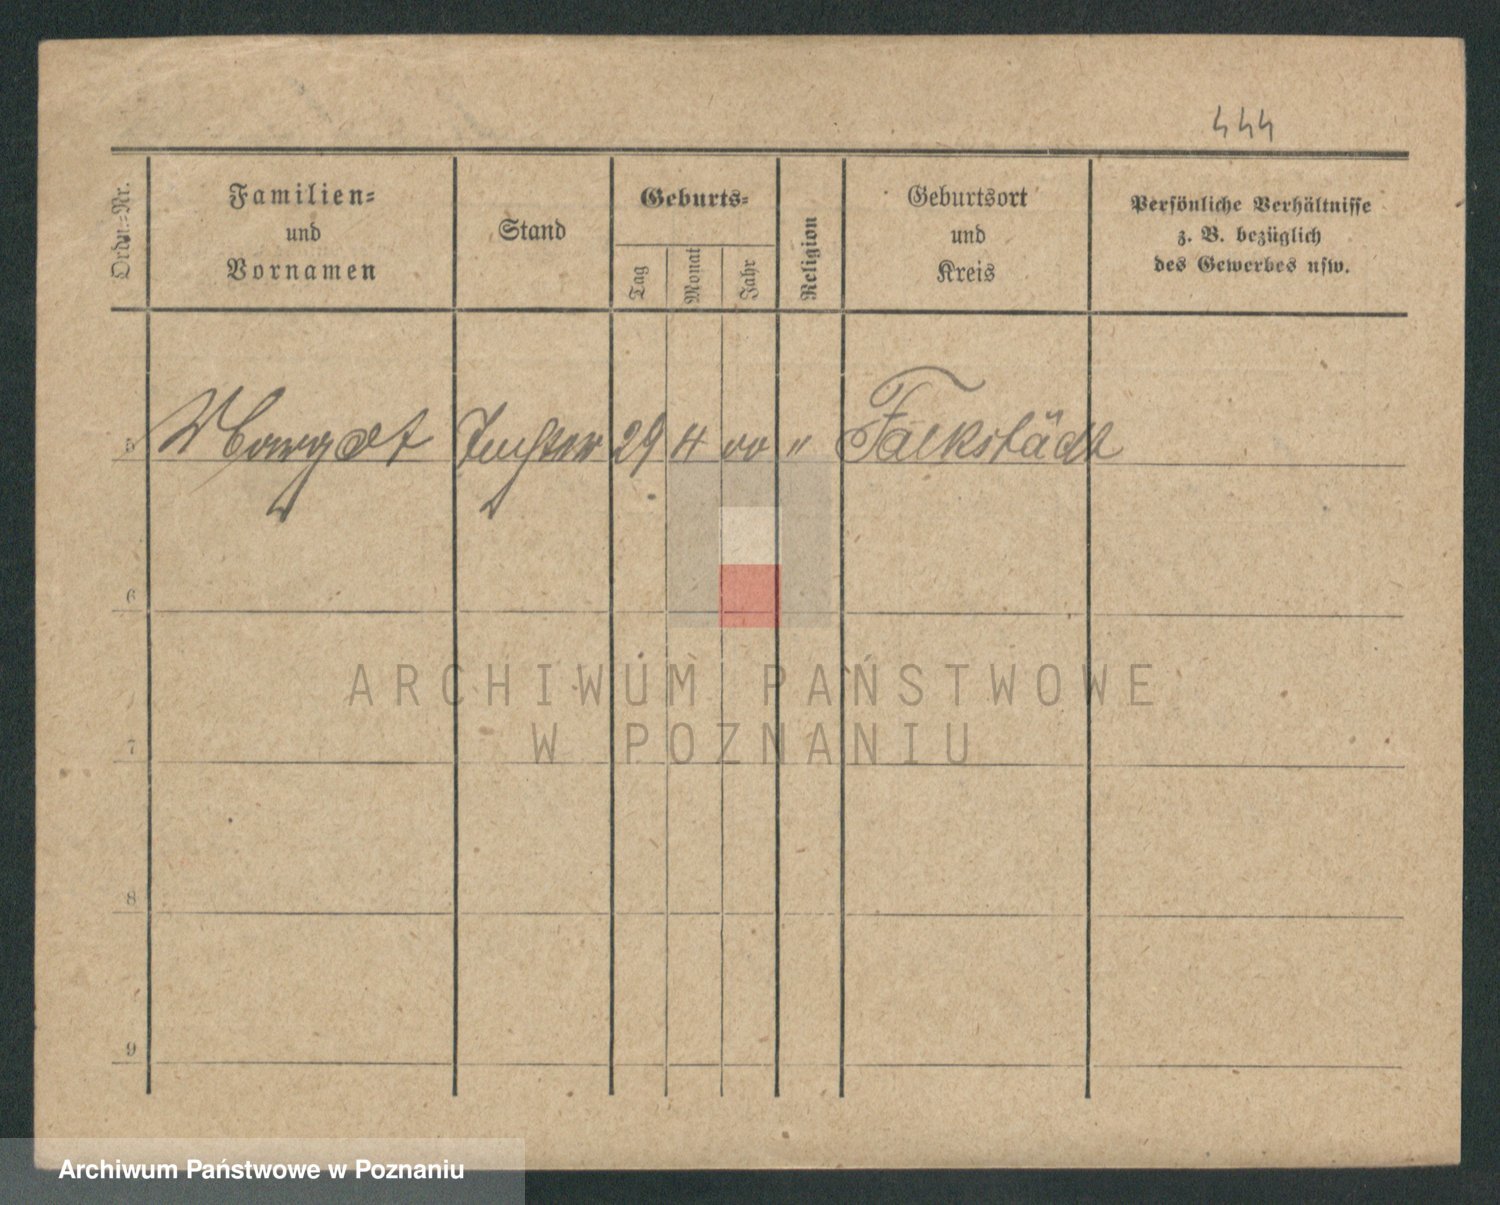 444
Ordn.=Nr.
Familien=
und
Vornamen
Stand
Geburts=
Tag
Monat
Jahr
Religion
Geburtsort
und
Kreis
Persönliche Verhältnisse
z. B. bezüglich
des Gewerbes usw.
5 Margot Tochter 29 4 00 " Falkstädt
6
7
8
9
ARCHIWUM PAŃSTWOWE
W POZNANIU
Archiwum Państwowe w Poznaniu